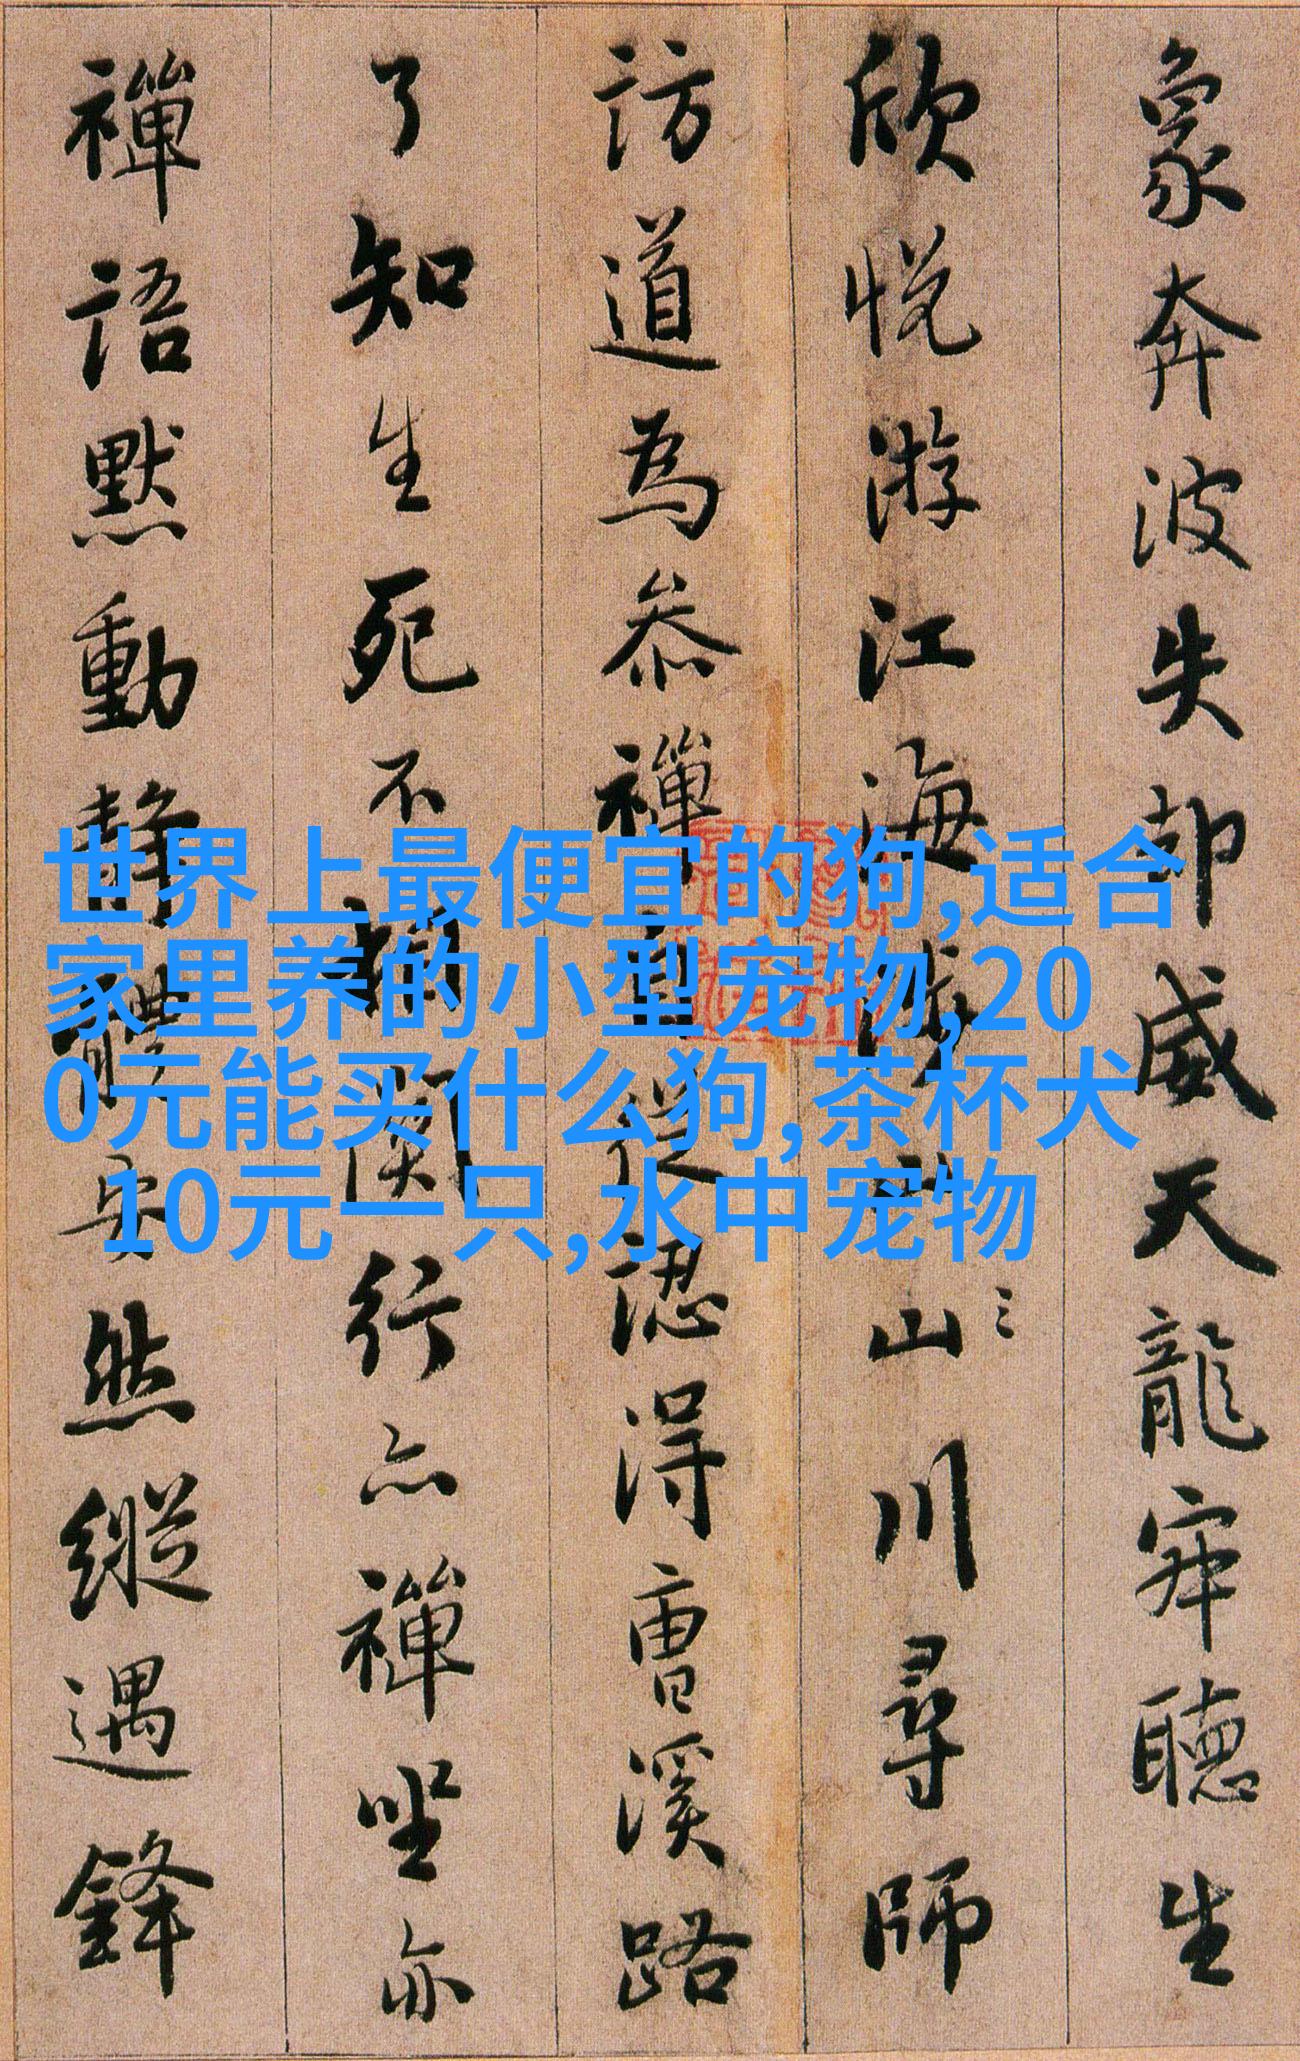 象奔波失却威天龍寂聽生
欣悅游江海涉山川尋師
訪道為參禪自從認得曹溪路
了知生死不相關行亦禪坐亦
禪語默動靜體安然縱遇鋒
世界上最便宜的狗,适合
家里养的小型宠物,20
0元能买什么狗,茶杯犬
10元一只,水中宠物